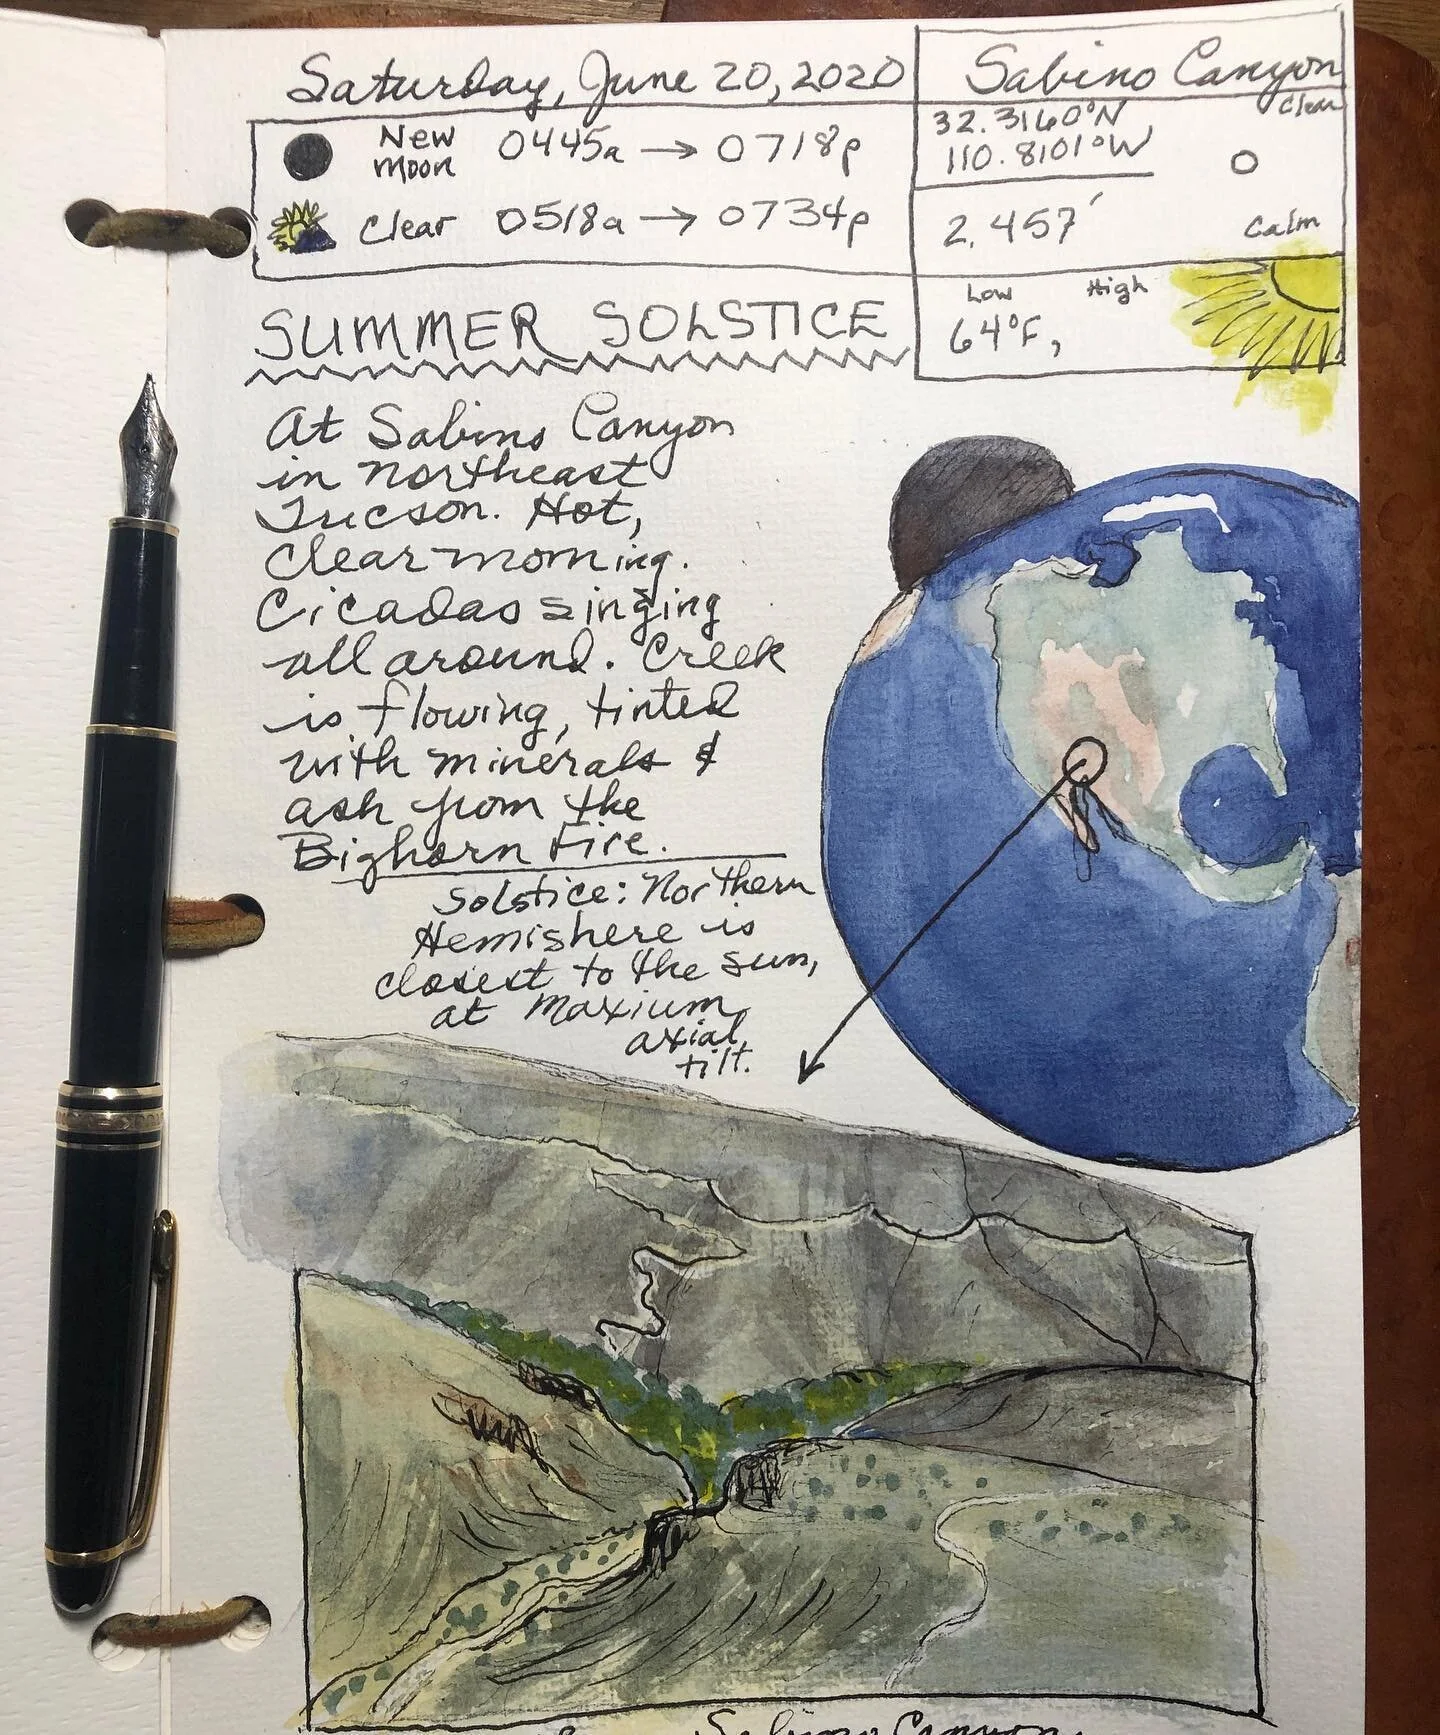 Saturday, June 20, 2020
Sabino Canyon
New Moon 0445a → 0718p
Clear 0518a → 0734p
32.3160°N
110.8101°W
Clear
2,457'
Calm
Low High
64°F,
SUMMER SOLSTICE
At Sabino Canyon
in Northeast
Tucson. Hot,
Clear morning.
Cicadas singing
all around. Creek
is flowing, tinted
with minerals &
ash from the
Bighorn Fire.
Solstice: Northern
Hemishere is
closest to the sun,
at Maxium
axial
tilt.
Sabino Canyon